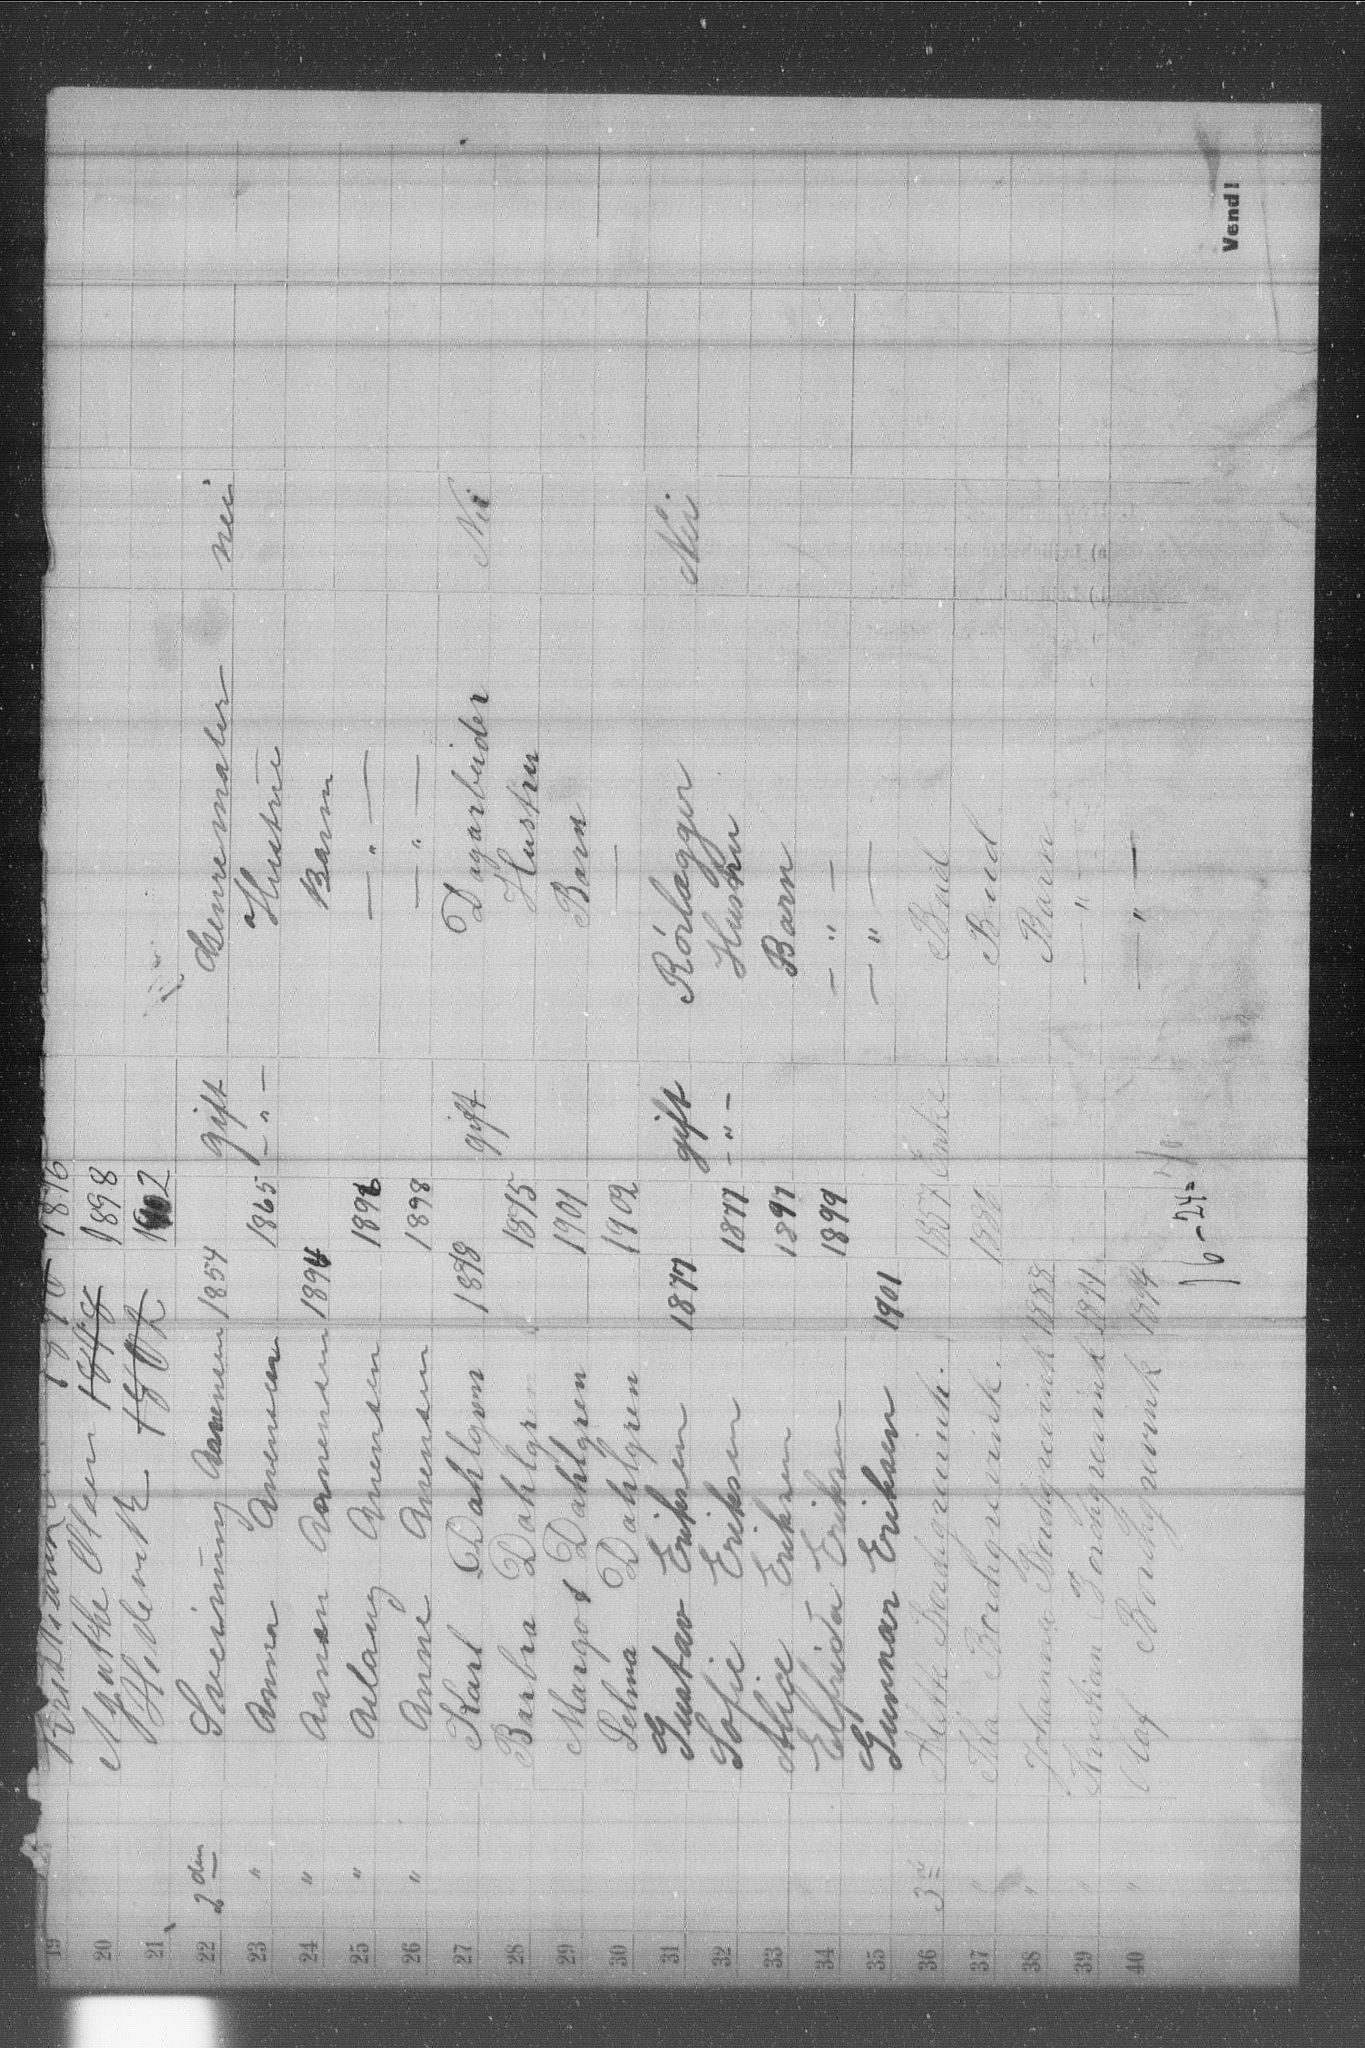 19 Kristian 1876 1876
20 Mathe Olsen 1848 1898
21 1802 1902
22 2den Sveinung Aanensen 1854 gift male nei
23 " Anna Anensen 1865 -"- Hustrue
24 " Aanen Aanensen 1894 Barn
25 " Aslaug Anensen 1896 — " —
26 " Anne Anensen 1898 — " —
27 Karl Dahlgren 1878 gift Dagarbeider Nei
28 Barbra Dahlgren 1875 Hustru
29 Margot Dahlgren 1901 Barn
30 Selma Dahlgren 1902 —
31 Gustav Eriksen 1877 gift Rörlægger Nei
32 Sofie Eriksen 1877 -"- Hustru
33 Alice Eriksen 1897 Barn
34 Elfrida Eriksen 1899 — " —
35 Gunnar Eriksen 1901 — " —
36 3 Bordigrevink. 1857 Enke Bud
37 " Bordigrevink. 1886 Bud
38 " Johanna Bordigrevink 1888 Barn
39 " Kristian Bordigrevink — " —
40 " Olof Bordigrevink 1894 — " —
16-24=
Vend!